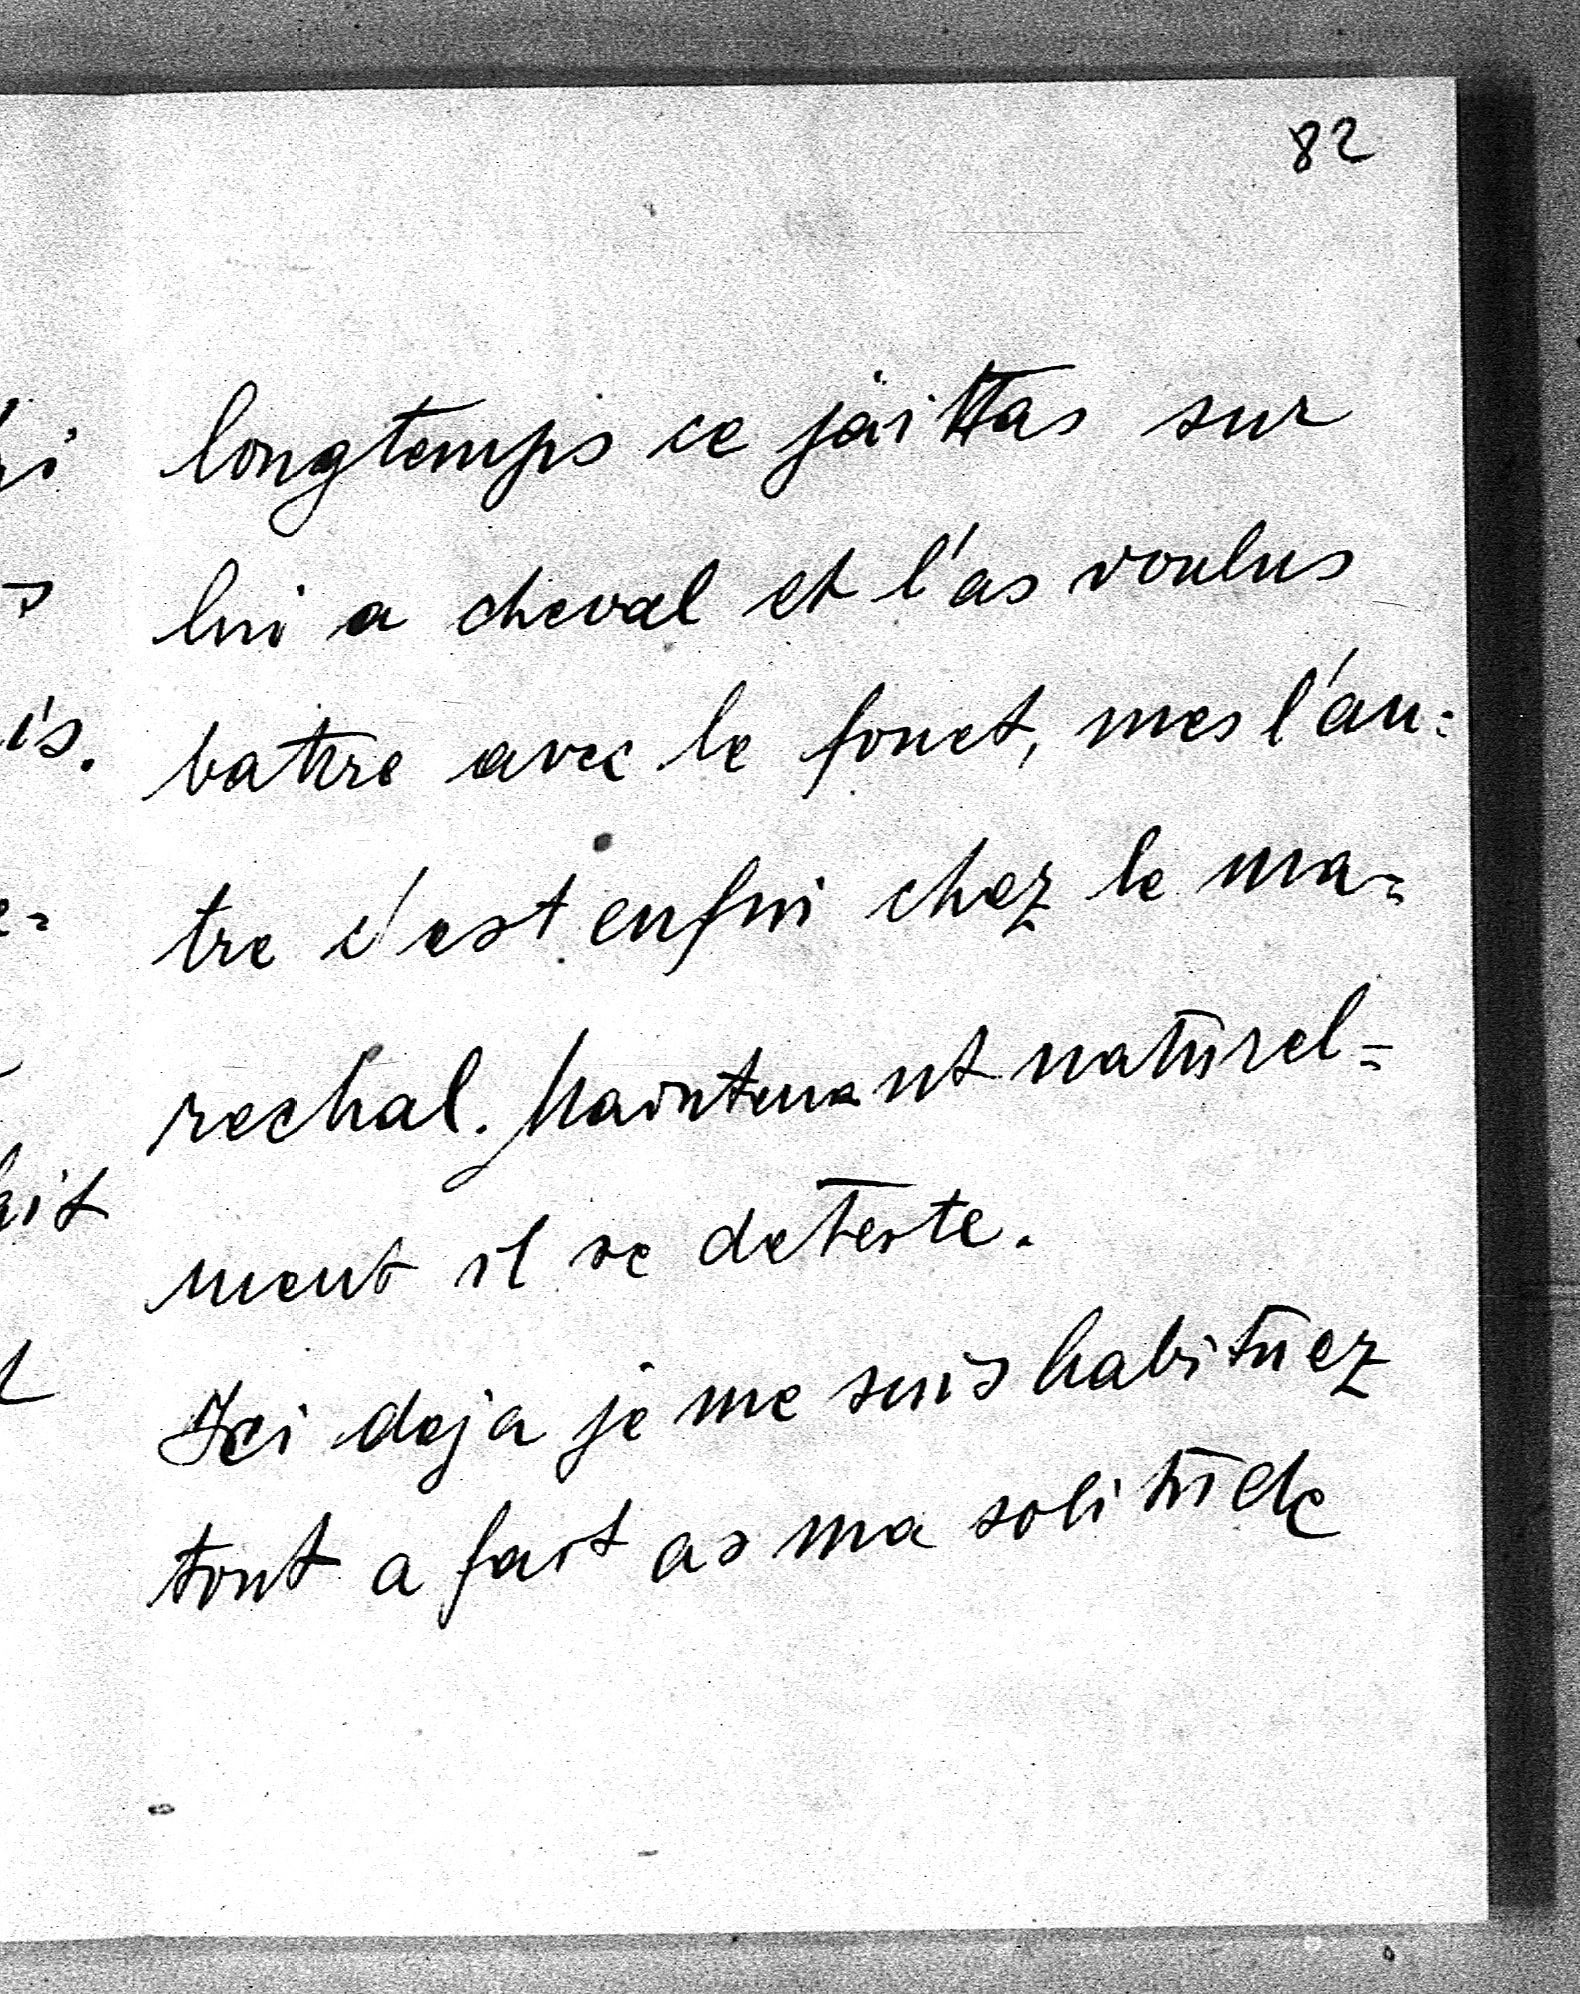 82
longtemps ce jaittas sur
lui a cheval et l'as voulus
battre avec le fouet, mes l'au=
tre c'est enfui chez le ma=
rechal. Maintenant naturel=
ment il se deteste.
Ici deja je me suis habituez
tout a fait as ma solitude